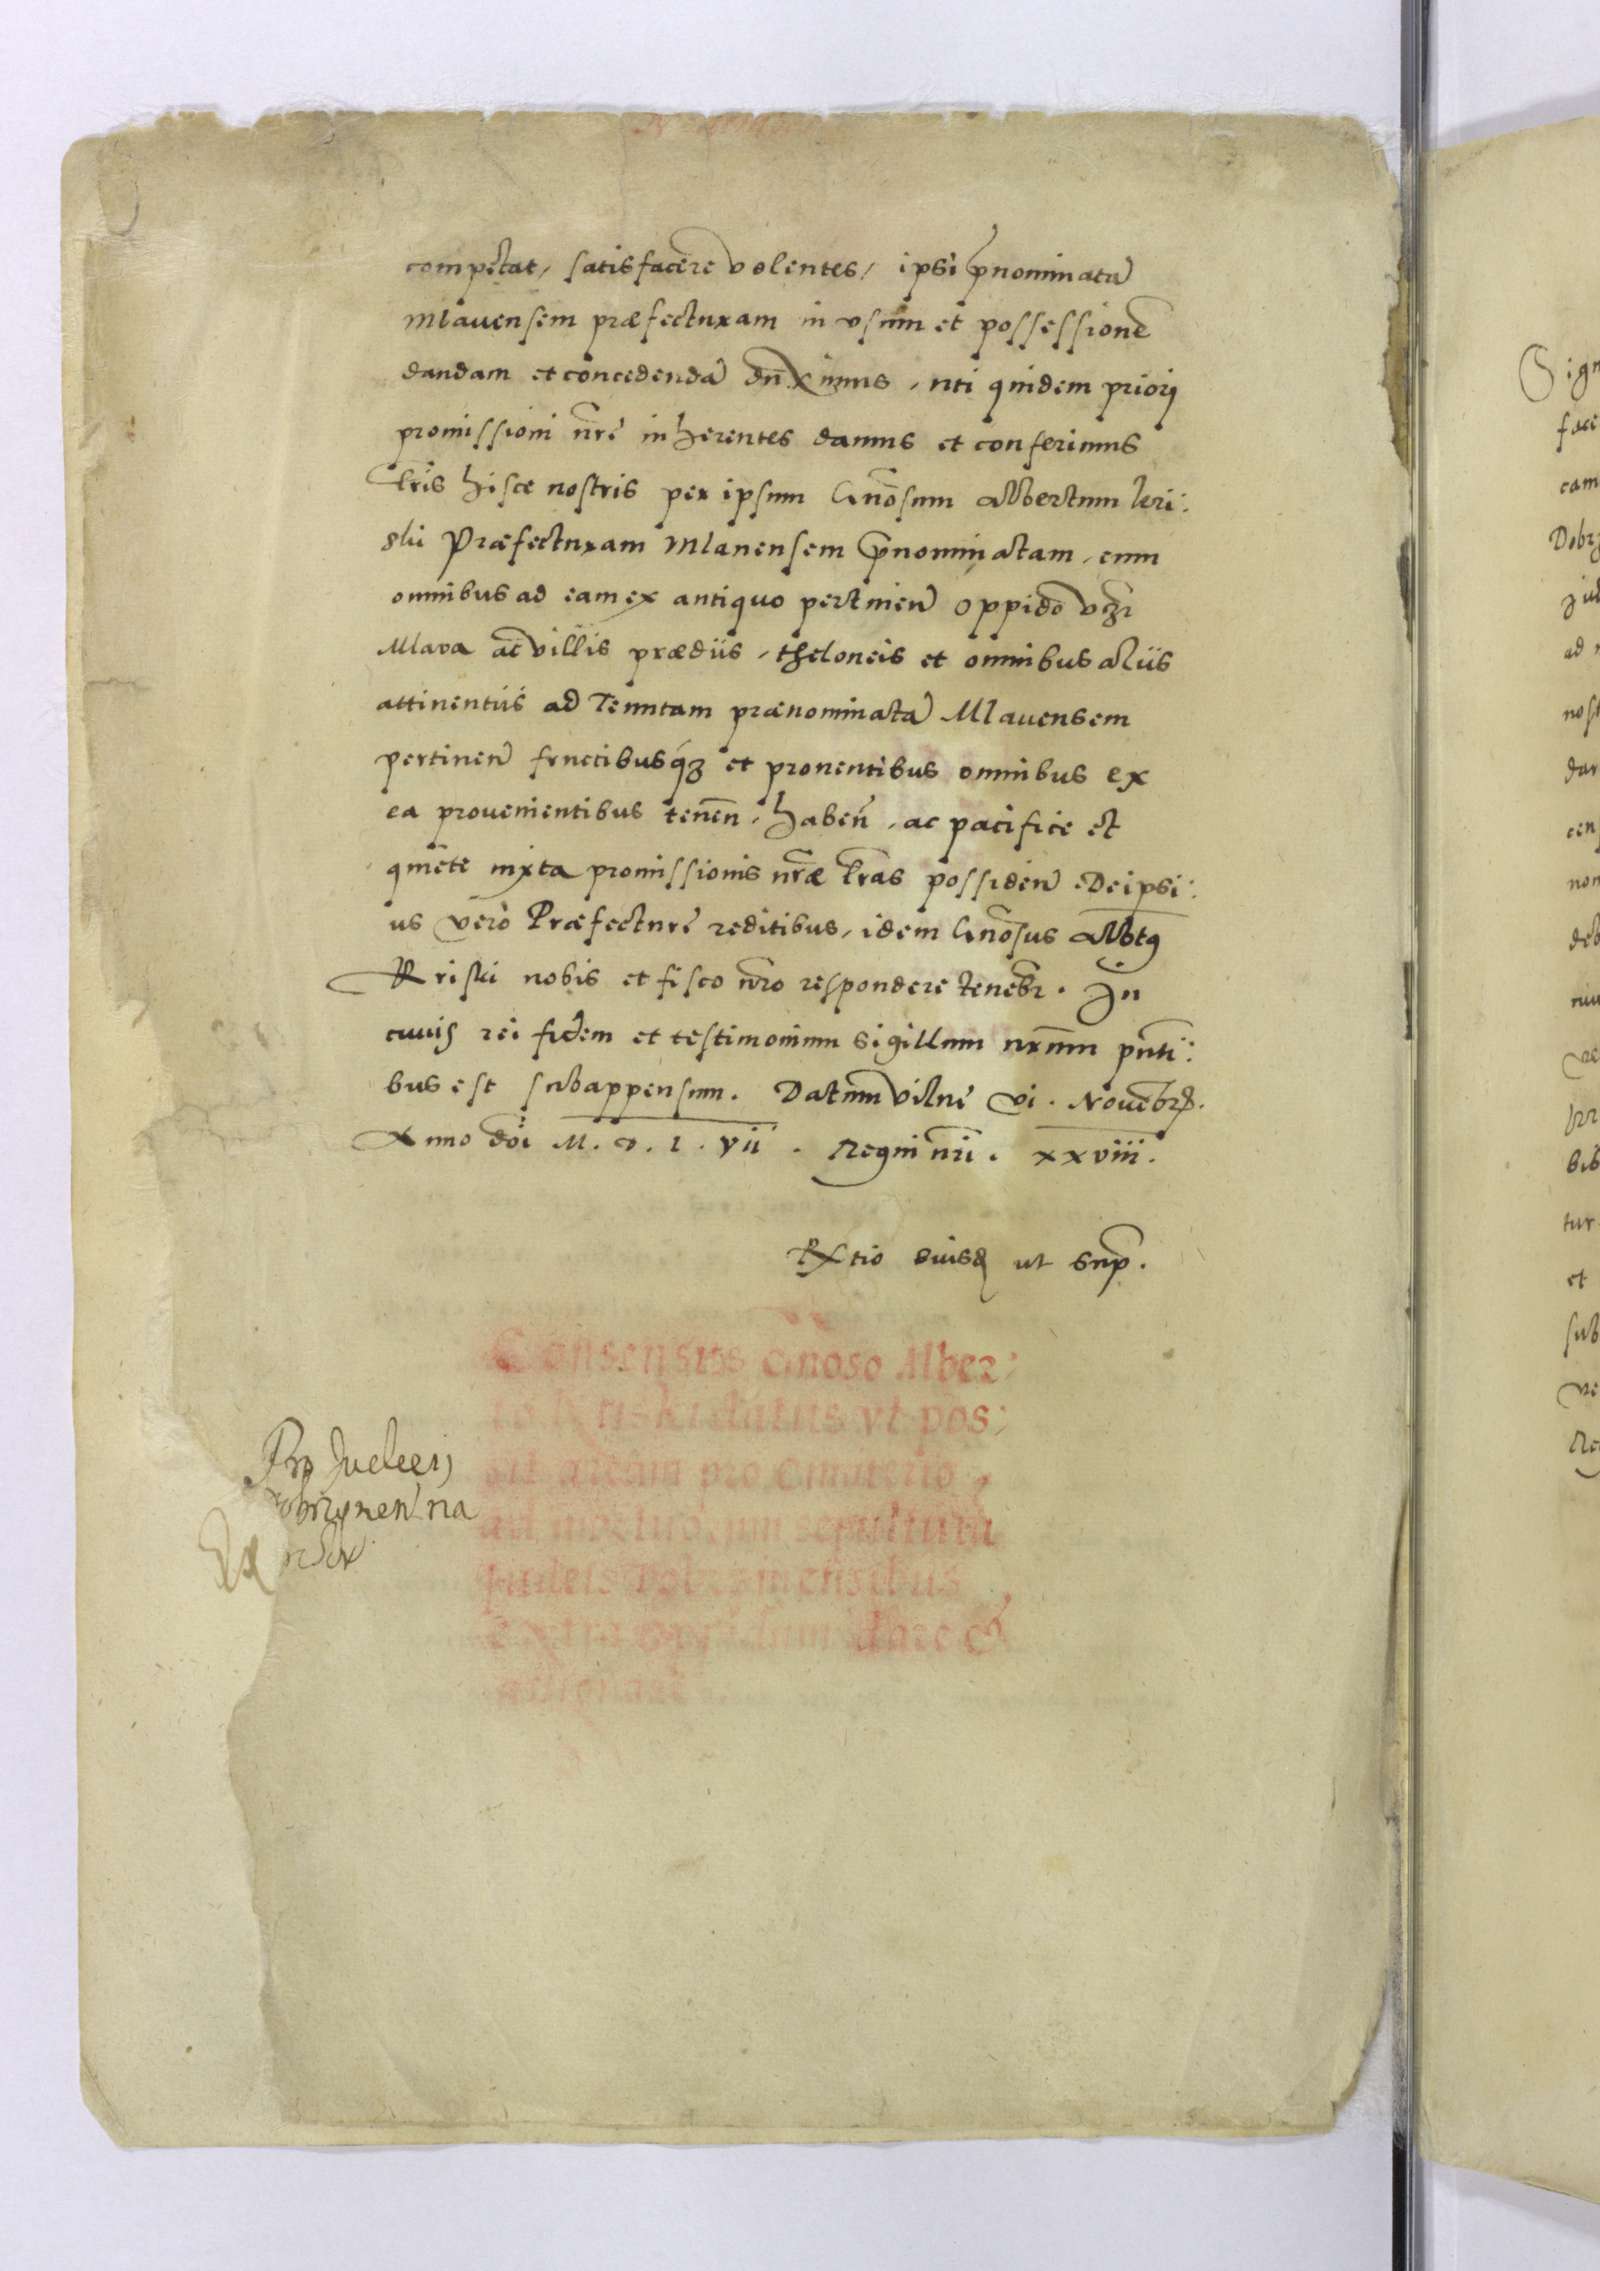 competat, satisfacere volentes, ipsi p̄nominatā
Mlauensem præfecturam in vsum et possessionē
dandam et concedendā duximus, uti quidem priori
promissioni nr̄ę inherentes damus et conferimus
Lr̄is hisce nostris per ipsum Gnōsum Albertum Kri:
ski Præfecturam Mlauensem p̄nominatam, cum
omnibus ad eam ex antiquo pertinen̄ oppido vcz̄
Mlava ac villis prædiis, theloneis et omnibus aliis
attinentiis ad Tenutam prænominatā Mlauensem
pertinen̄ fructibusq́ꝫ et prouentibus omnibus ex
ea prouenientibus tenen̄, haben̄, ac pacifice et
quiete iuxta promissionis nr̄æ lr̄as possiden̄ De ipsi:
us verò Præfecturę reditibus, idem Gnōsus Albtꝰ
Kriski nobis et fisco nr̄o respondere tenebr̄. In
cuius rei fidem et testimonium sigillum nr̄um pn̄ti:
bus est subappensum. Datum Vilnę vi. Nouēbr̄.
Anno dōi M. D. L. vii. Regni nr̄i. xxviii.
Rx̄tio euisd ut sup̄.
Consensus Gnoso Alber:
to Kriski datus vt pos:
sit aream pro Cimiterio,
ad mortuorum sepulturā
Judeis Dobrzinensibus
extra oppidum dare &
assignare.
Pro Judeis